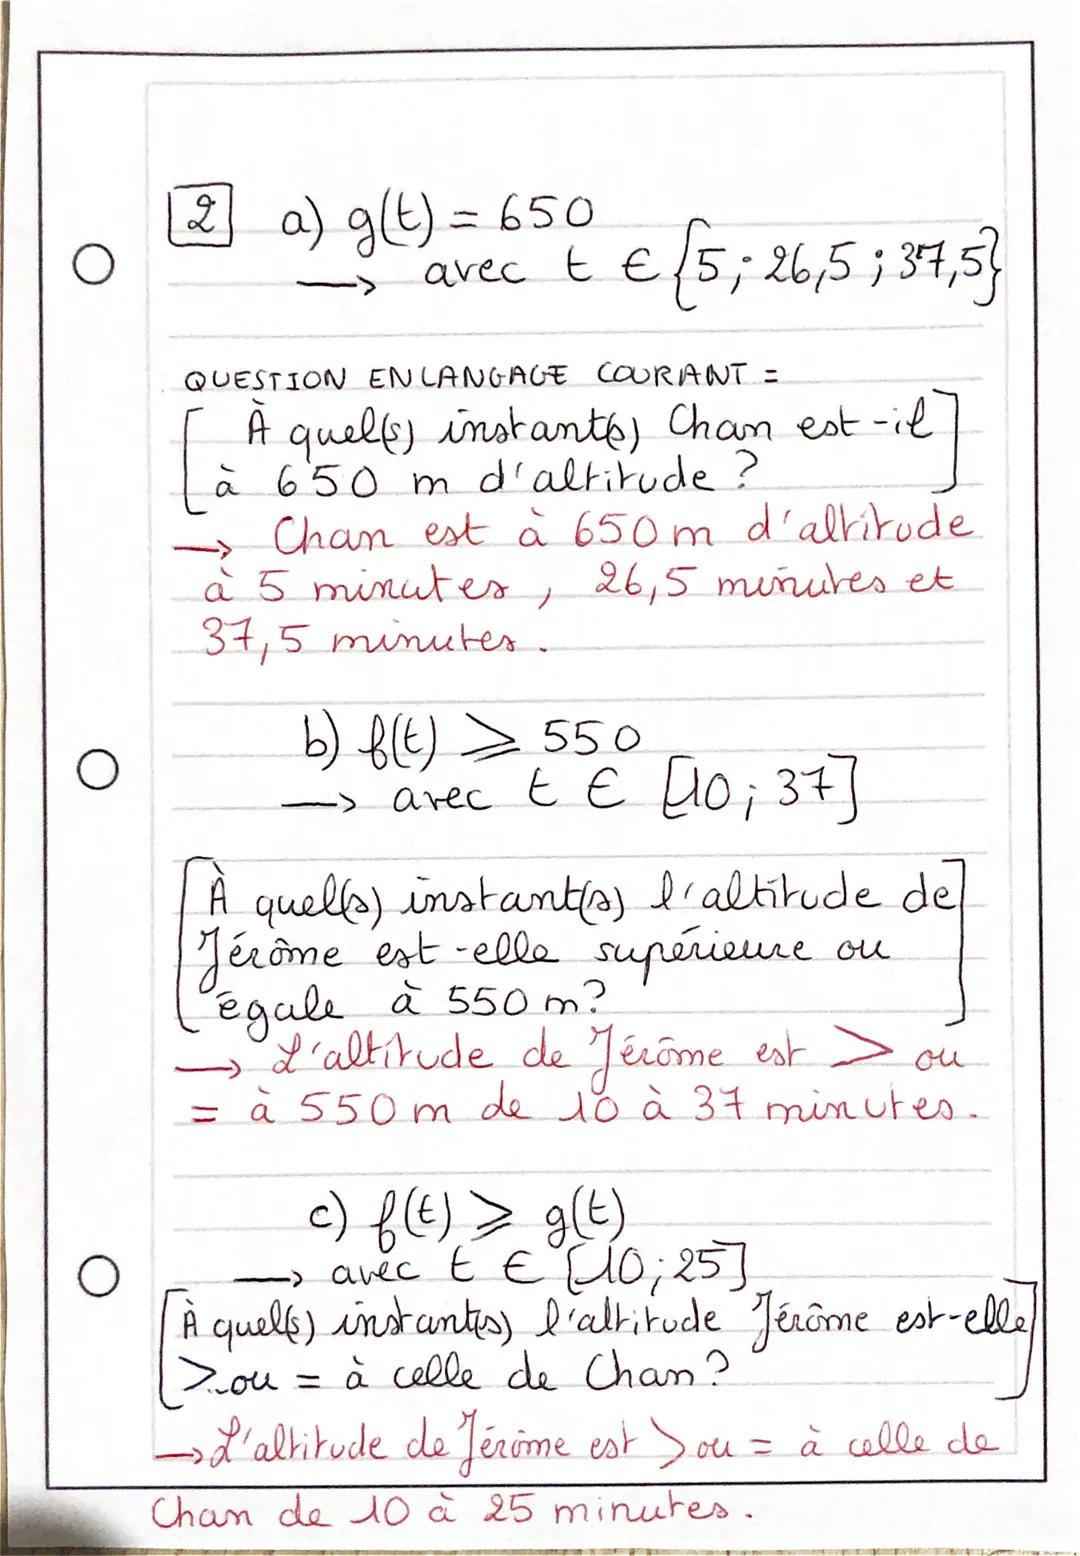 2 a) g(t) = 650
→ avec t ∈ {5; 26,5; 37,5}
QUESTION EN LANGAGE COURANT =
[À quel(s) instant(s) Chan est-il
à 650 m d'altitude ?]
→ Chan est à 650 m d'altitude
à 5 minutes, 26,5 minutes et
37,5 minutes.
b) f(t) ⩾ 550
→ avec t ∈ [10; 37]
[À quel(s) instant(s) l'altitude de
Jérôme est-elle supérieure ou
égale à 550 m?]
→ L'altitude de Jérôme est > ou
= à 550 m de 10 à 37 minutes.
c) f(t) ⩾ g(t)
→ avec t ∈ [10; 25]
[À quel(s) instant(s) l'altitude Jérôme est-elle
> ou = à celle de Chan ?]
→ L'altitude de Jérôme est > ou = à celle de
Chan de 10 à 25 minutes.